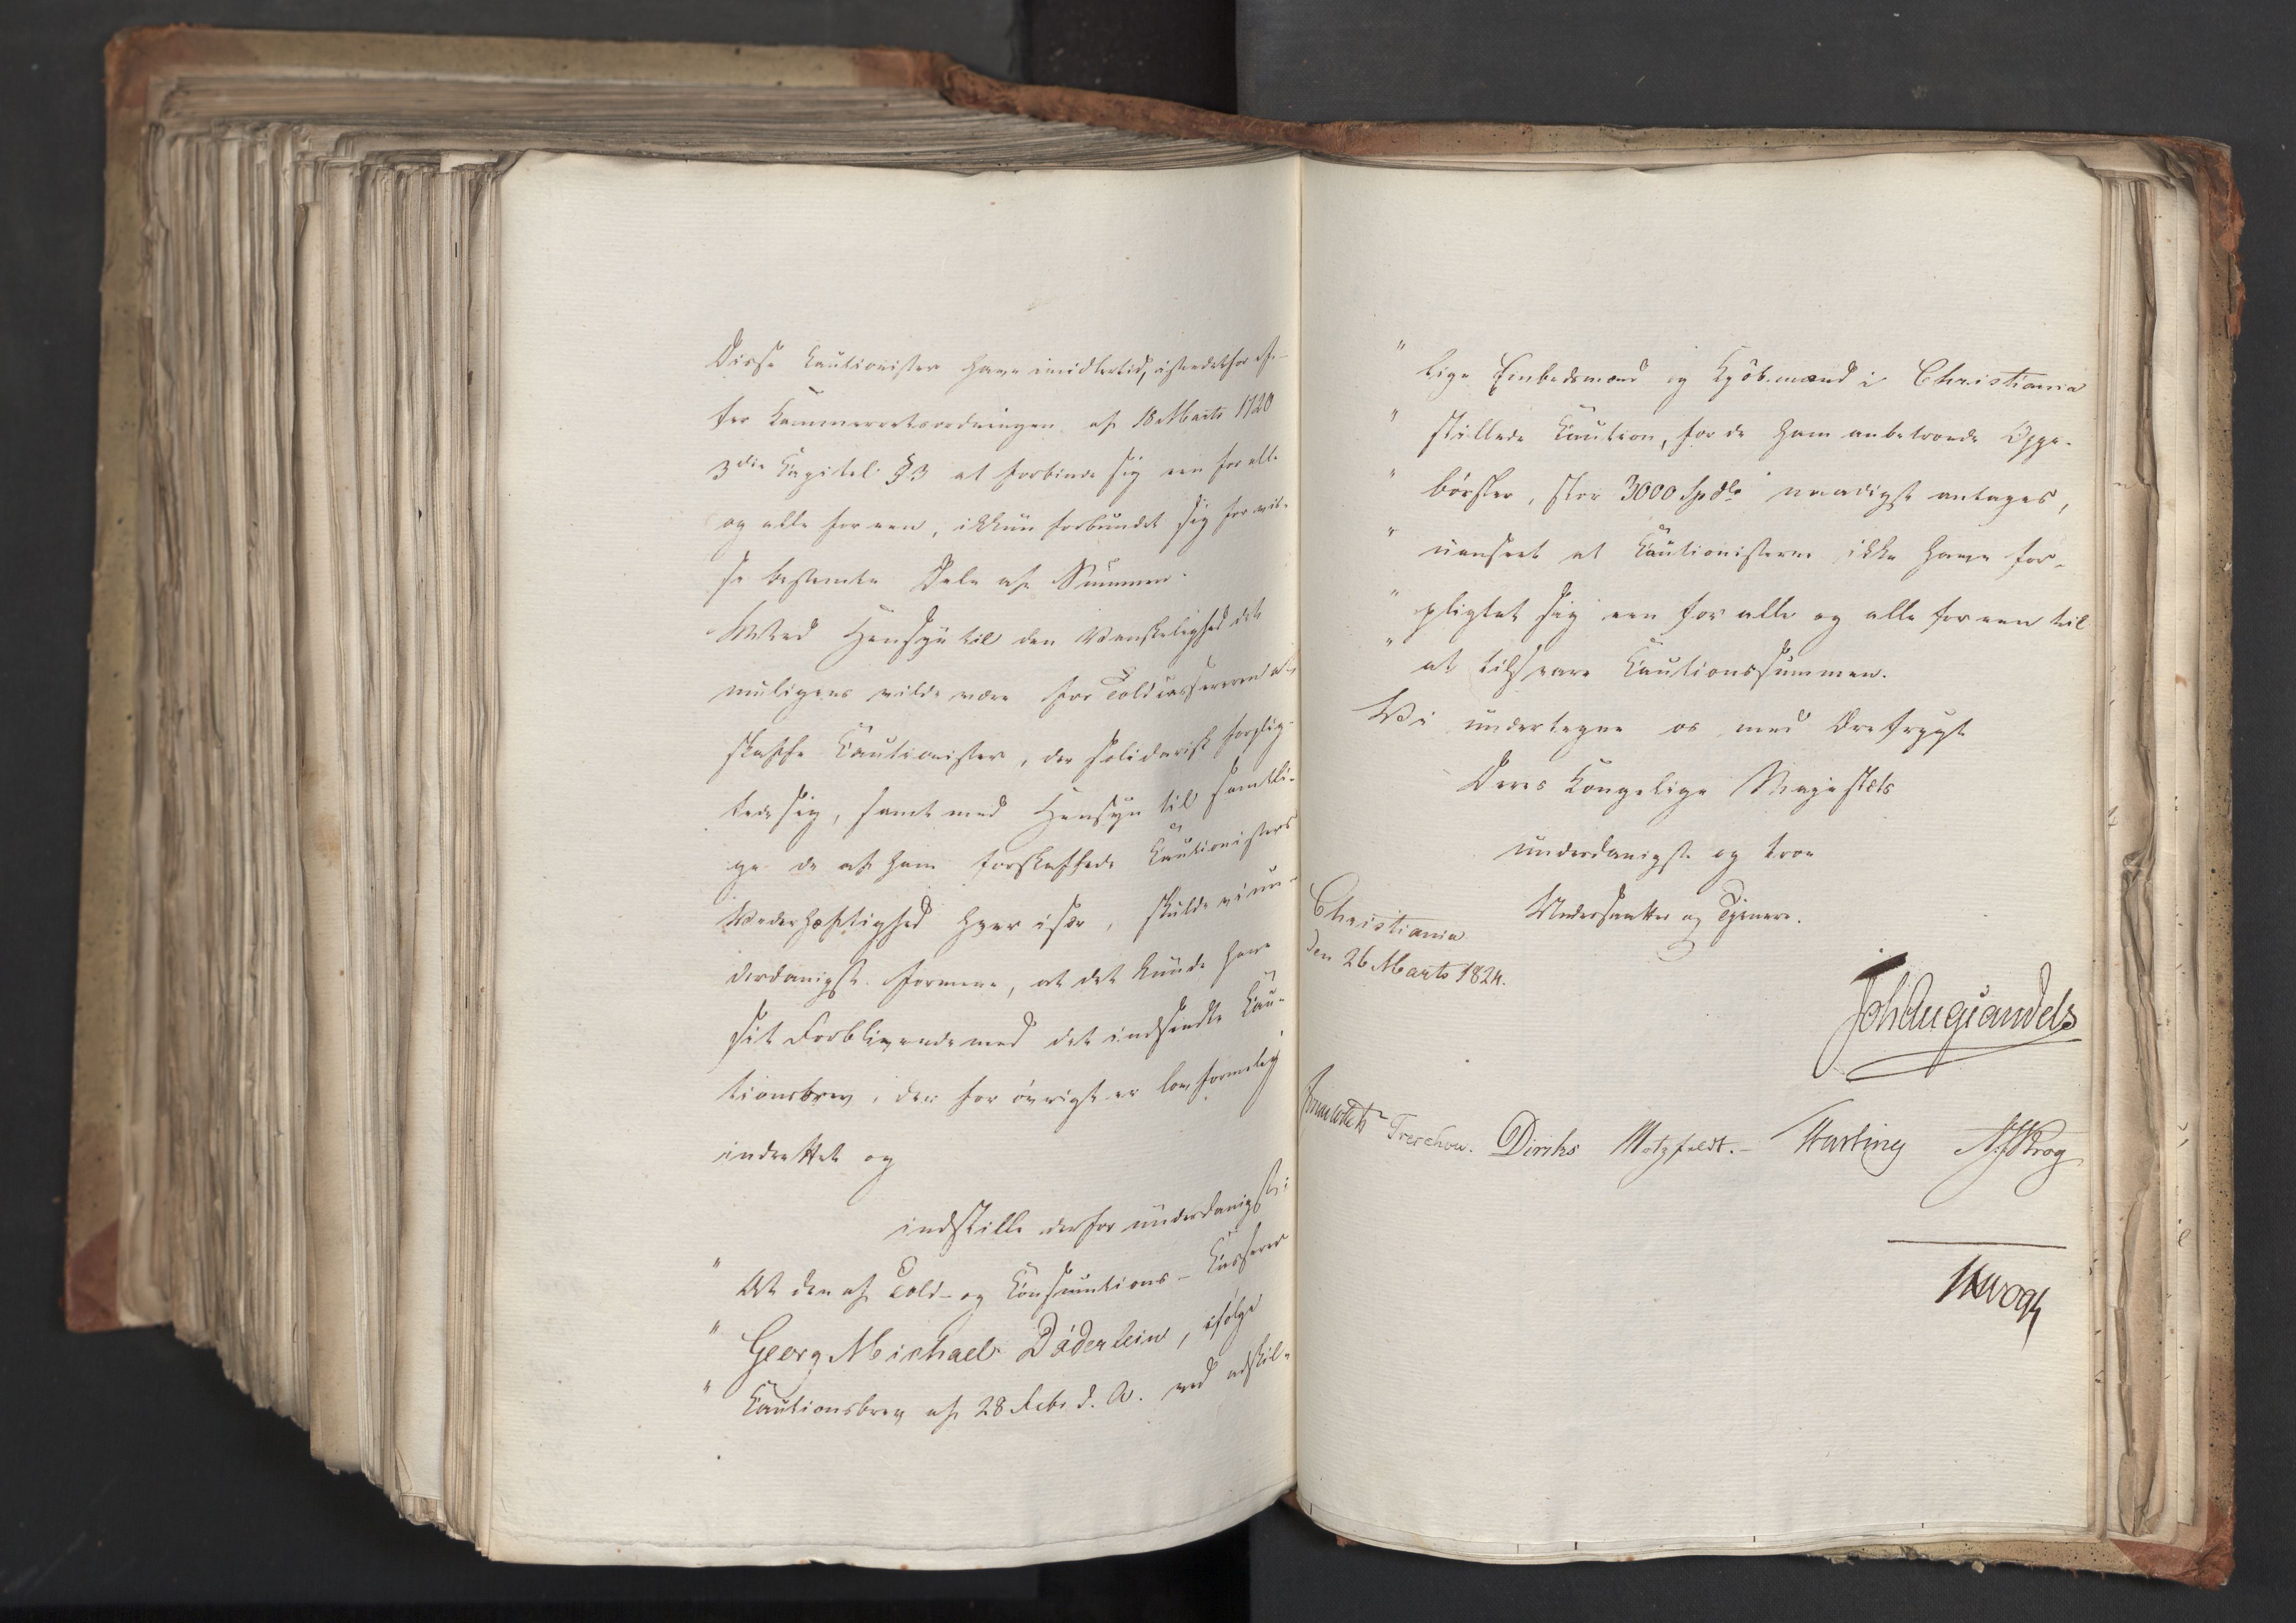 Disse Cautionister have imidlertid, istedetfor ef-
ter Kammerretsordningen af 18 Marts 1720
3die Capitel § 3 at forbinde sig een for alle
og alle for een, ikkun forbundet sig for vis-
se bestemte Dele af Summen.
Med Hensyn til den Vanskelighed det
muligens vilde være for Toldcassereren at
skaffe Cautionister, der solidarisk forplig-
tede sig, samt med Hensyn til samtli-
ge de af ham forskaffede Cautionisters
Vederhæftighed hver især, skulde vi un-
derdanigst formene, at det kunde have
sit Forblivende med det indsendte Cau-
tionsbrev, der for øvrigt er lovformelig
indrettet og
indstille derfor underdanigst:
" At den af Told- og Consumtions-Casserer
" Georg Michael Døderlein, ifølge
" Cautionsbrev af 28 Febr d. A. ved adskil-
" lige Embedsmænd og Kjøbmænd i Christiania
" stillede Caution, for de ham anbetroede Oppe-
" børsler, stor 3000 Spdlr naadigst antages,
" uanseet at Cautionisterne ikke have for-
" pligtet sig een for alle og alle for een til
" at tilsvare Cautionssummen.
Vi undertegne os med Ærefrygt
Deres Kongelige Majestæts
underdanigste og troe
Undersaatter og Tjenere.
Christiania
den 26 Marts 1824.
Joh Aug Sandels
Sommerhielm Treschow. Diriks Motzfeldt. Fasting A. J. Krog
Hvogt